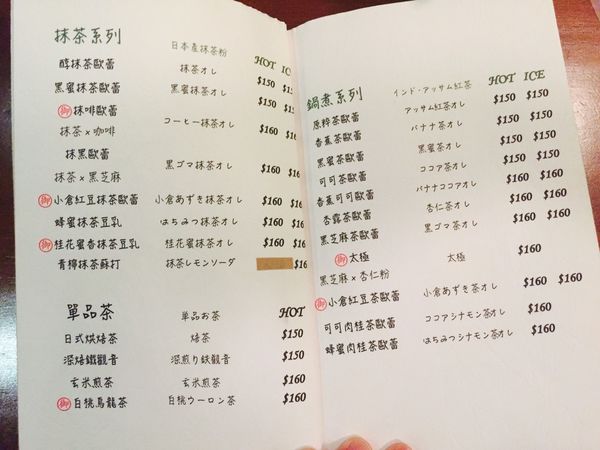 抹茶系列 日本産抹茶粉 HOT ICE
醇抹茶歐蕾 抹茶オレ $150 $15
黑蜜抹茶歐蕾 黑蜜抹茶オレ $150 $15
御 抹啡歐蕾
抹茶×咖啡 コーヒー抹茶オレ $160 $16
抹黑歐蕾
抹茶×黑芝麻 黒ゴマ抹茶オレ $160 $16
御 小倉紅豆抹茶歐蕾 小倉あずき抹茶オレ $160 $16
蜂蜜抹茶豆乳 はちみつ抹茶オレ $160 $16
御 桂花蜜香抹茶豆乳 桂花蜜抹茶オレ $160 $16
青檸抹茶蘇打 抹茶レモンソーダ $16
單品茶 単品お茶 HOT
日式烘焙茶 焙茶 $150
深焙鐵觀音 深煎り鉄観音 $150
玄米煎茶 玄米煎茶 $160
御 白桃烏龍茶 白桃ウーロン茶 $160
鍋煮系列 インド・アッサム紅茶 HOT ICE
原粹茶歐蕾 アッサム紅茶オレ $150 $150
香蕉茶歐蕾 バナナ茶オレ $150 $150
黑蜜茶歐蕾 黒蜜茶オレ $150 $150
可可茶歐蕾 ココア茶オレ $150 $150
香蕉可可歐蕾 バナナココアオレ $160 $160
杏露茶歐蕾 杏仁茶オレ $160 $160
黑芝麻茶歐蕾 黒ゴマ茶オレ $160 $160
御 太極 太極 $160
黑芝麻×杏仁粉
御 小倉紅豆茶歐蕾 小倉あずき茶オレ $160 $160
可可肉桂茶歐蕾 ココアシナモン茶オレ $160
蜂蜜肉桂茶歐蕾 はちみつシナモン茶オレ $160